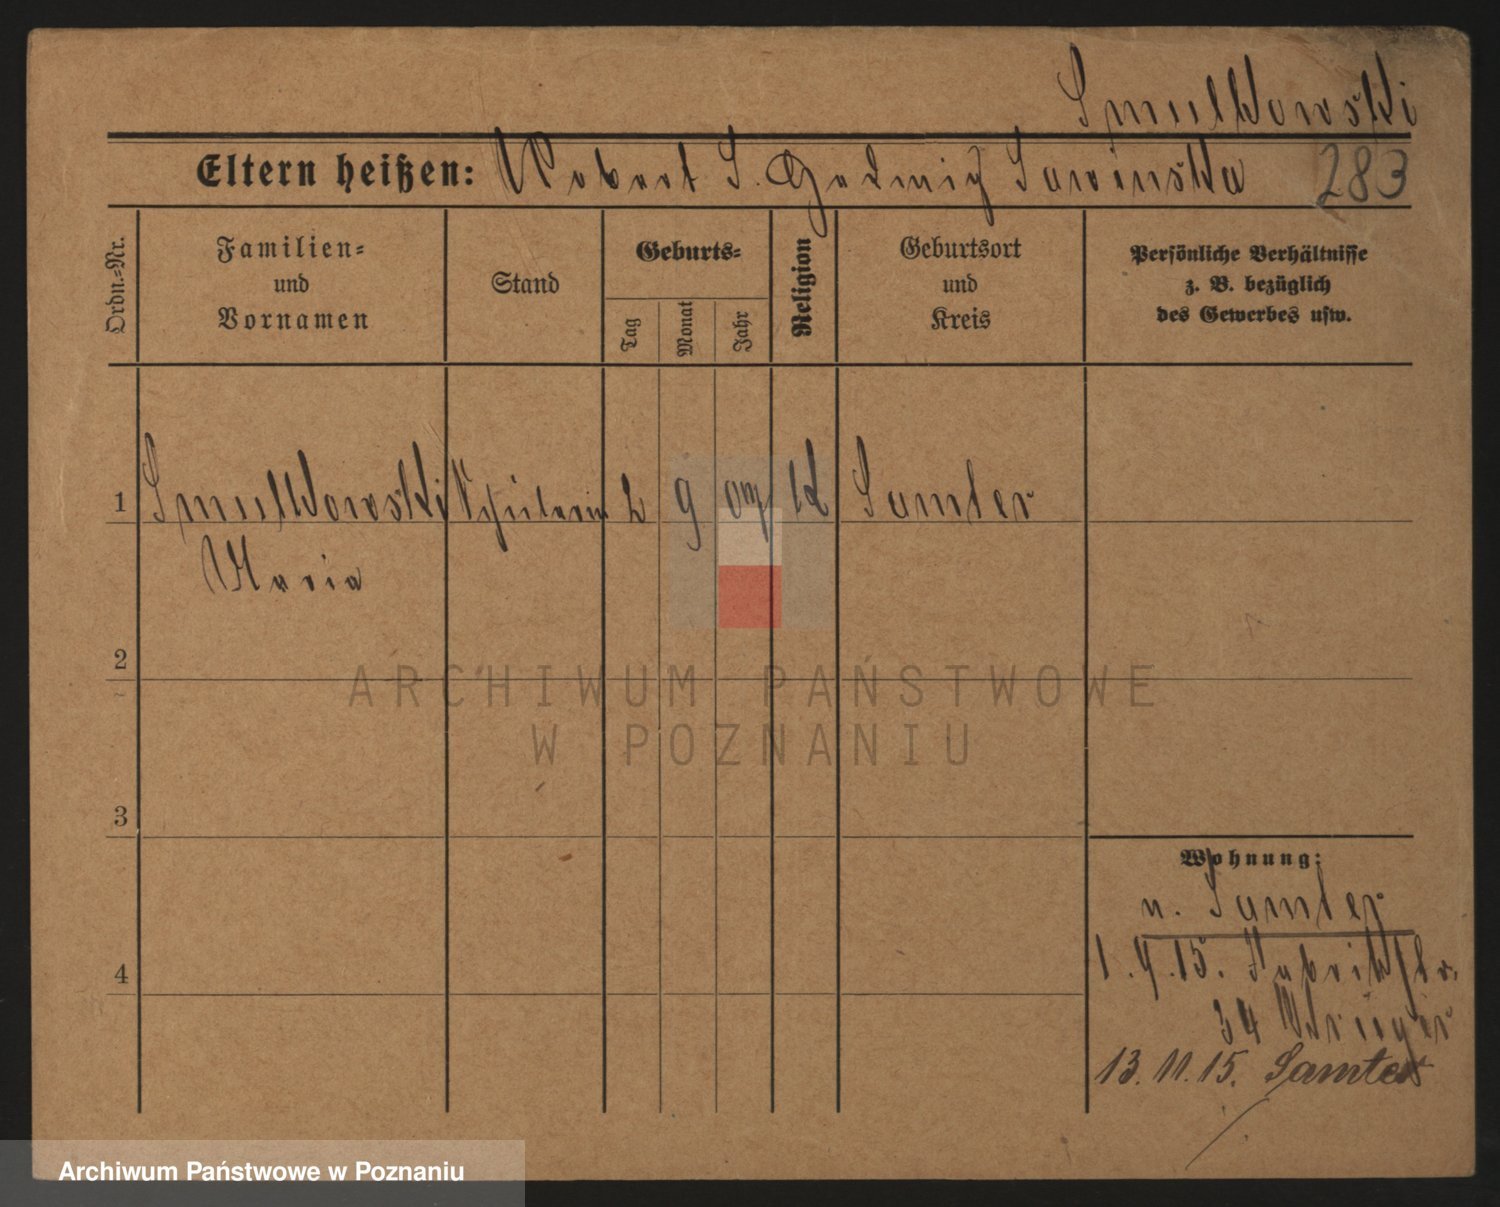 Smulkowski
Eltern heißen: Robert S. Hedwig Sawinska 283
Ordn.=Nr.
Familien=
und
Vornamen
Stand
Geburts=
Tag
Monat
Jahr
Religion
Geburtsort
und
Kreis
Persönliche Verhältnisse
z. B. bezüglich
des Gewerbes usw.
1 Smulkowski Schülerin 2 9 K Samter
Maria
2
ARCHIWUM PAŃSTWOWE
W POZNANIU
3
Wohnung:
n. Samter
4
1.4.15. Fabrikstr.
34 Krüger
13.11.15. Samter
Archiwum Państwowe w Poznaniu